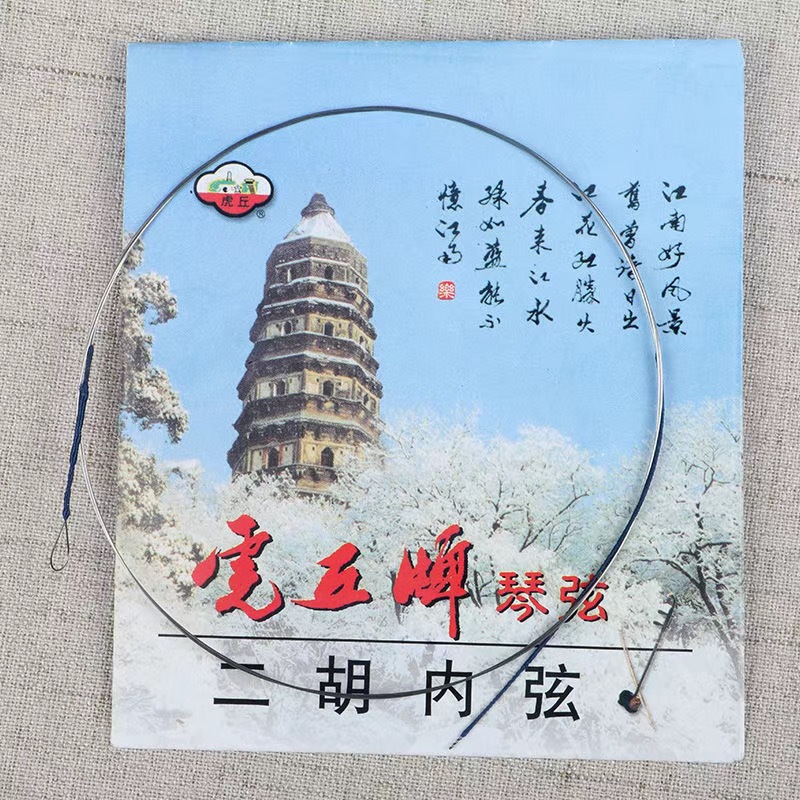 虎丘®
江南好风景
舊曾谙日出
江花红勝火
春来江水
绿如蓝能不
憶江南
樂
虎丘牌 琴弦
二胡内弦